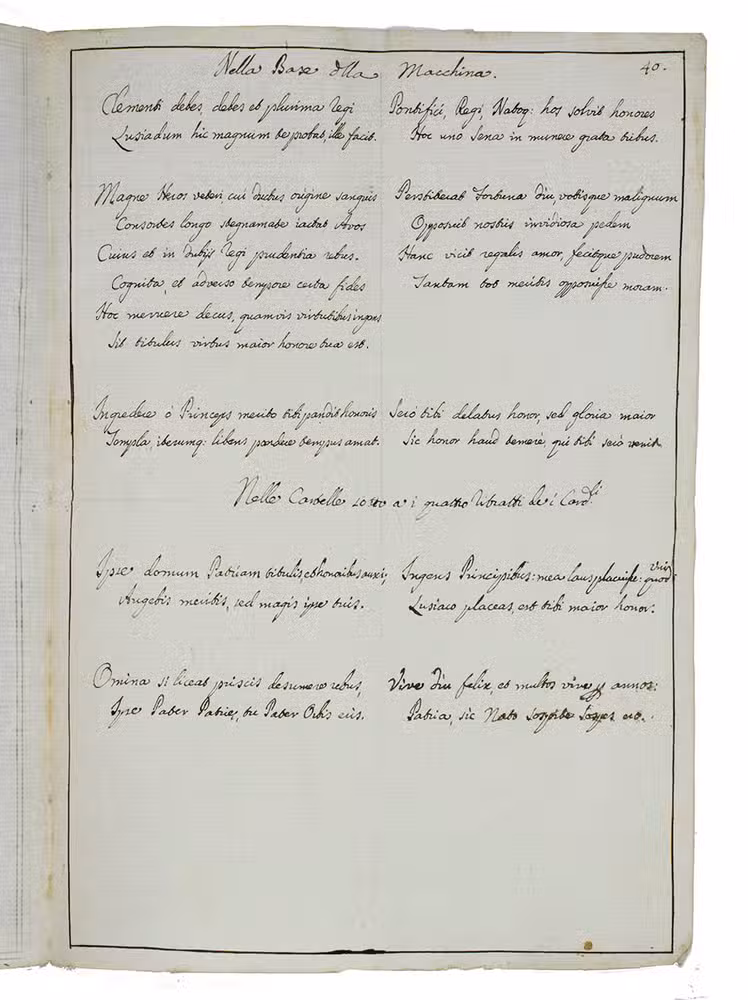 Nella Base dlla Macchina. 40.
Clementi debes, debes et plurima Regi
Lusiadum hic magnum te probat, ille facit.
Pontifici, Regi, Natoq: hos solvit honores
Hoc uno Sena in munere grata tribus.
Magne Heros veteri cui ductus origine sanguis
Consortes longo stegmate iactat Avos
Cuius et in dubijs Regi prudentia rebus.
Cognita, et adverso tempore certa fides
Hoc meruere decus, quamvis virtutibus ingens
Sit titulus virtus maior honore tua est.
Perstiterat Fortuna diu, vobisque malignum
Opposuit nostris invidiosa pedem
Hanc vicit regalis amor, fecitque pudorem
Tantam tot meritis opposuisse moram.
Ingredere ó Princeps merito tibi pandit honoris
Templa, iterumq: libens pandere tempus amat.
Seró tibi delatus honor, sed gloria maior
Sic honor haud temere, qui tibi seró venit
Nelle Cartelle sotto a i quattro Ritratti de i Cardli
Ipse domum Patriam titulis et honoribus auxi;
Augebis meritis, sed magis ipse tuis.
Ingens Principibus: mea laus placuisse: viris quod
Lusiaco placeas, est tibi maior honor.
Omina si liceat priscis desumere rebus,
Ipse Pater Patriæ, tu Pater Orbis eris.
Vive diu felix, et multos vive annos:
Patria, sic Nato sospite sospes erit.